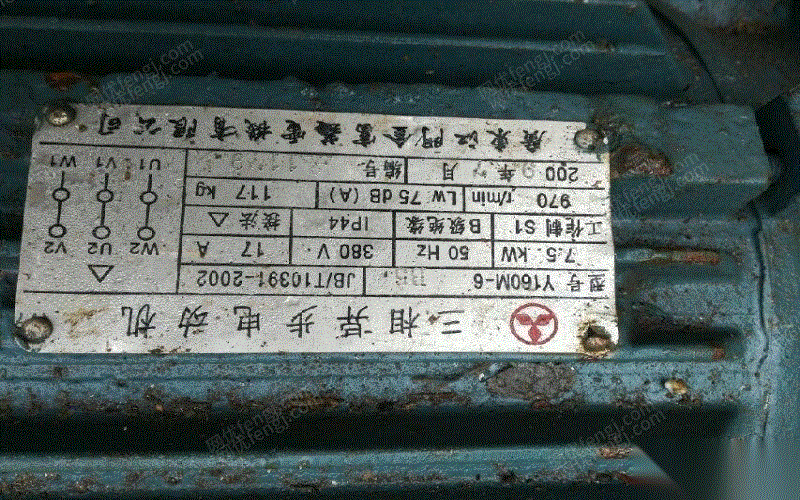 三相异步电动机
型号 Y160M-6 B5. JB/T10391-2002
7.5. kW 50 Hz 380 V 17 A
工作制 S1 B级绝缘 IP44 接法 △
970 r/min Lw 75 dB (A) 117 kg
200 年 月 编号
廣東江門金富鑫電機有限公司
△
W2 U2 V2
U1 V1 W1